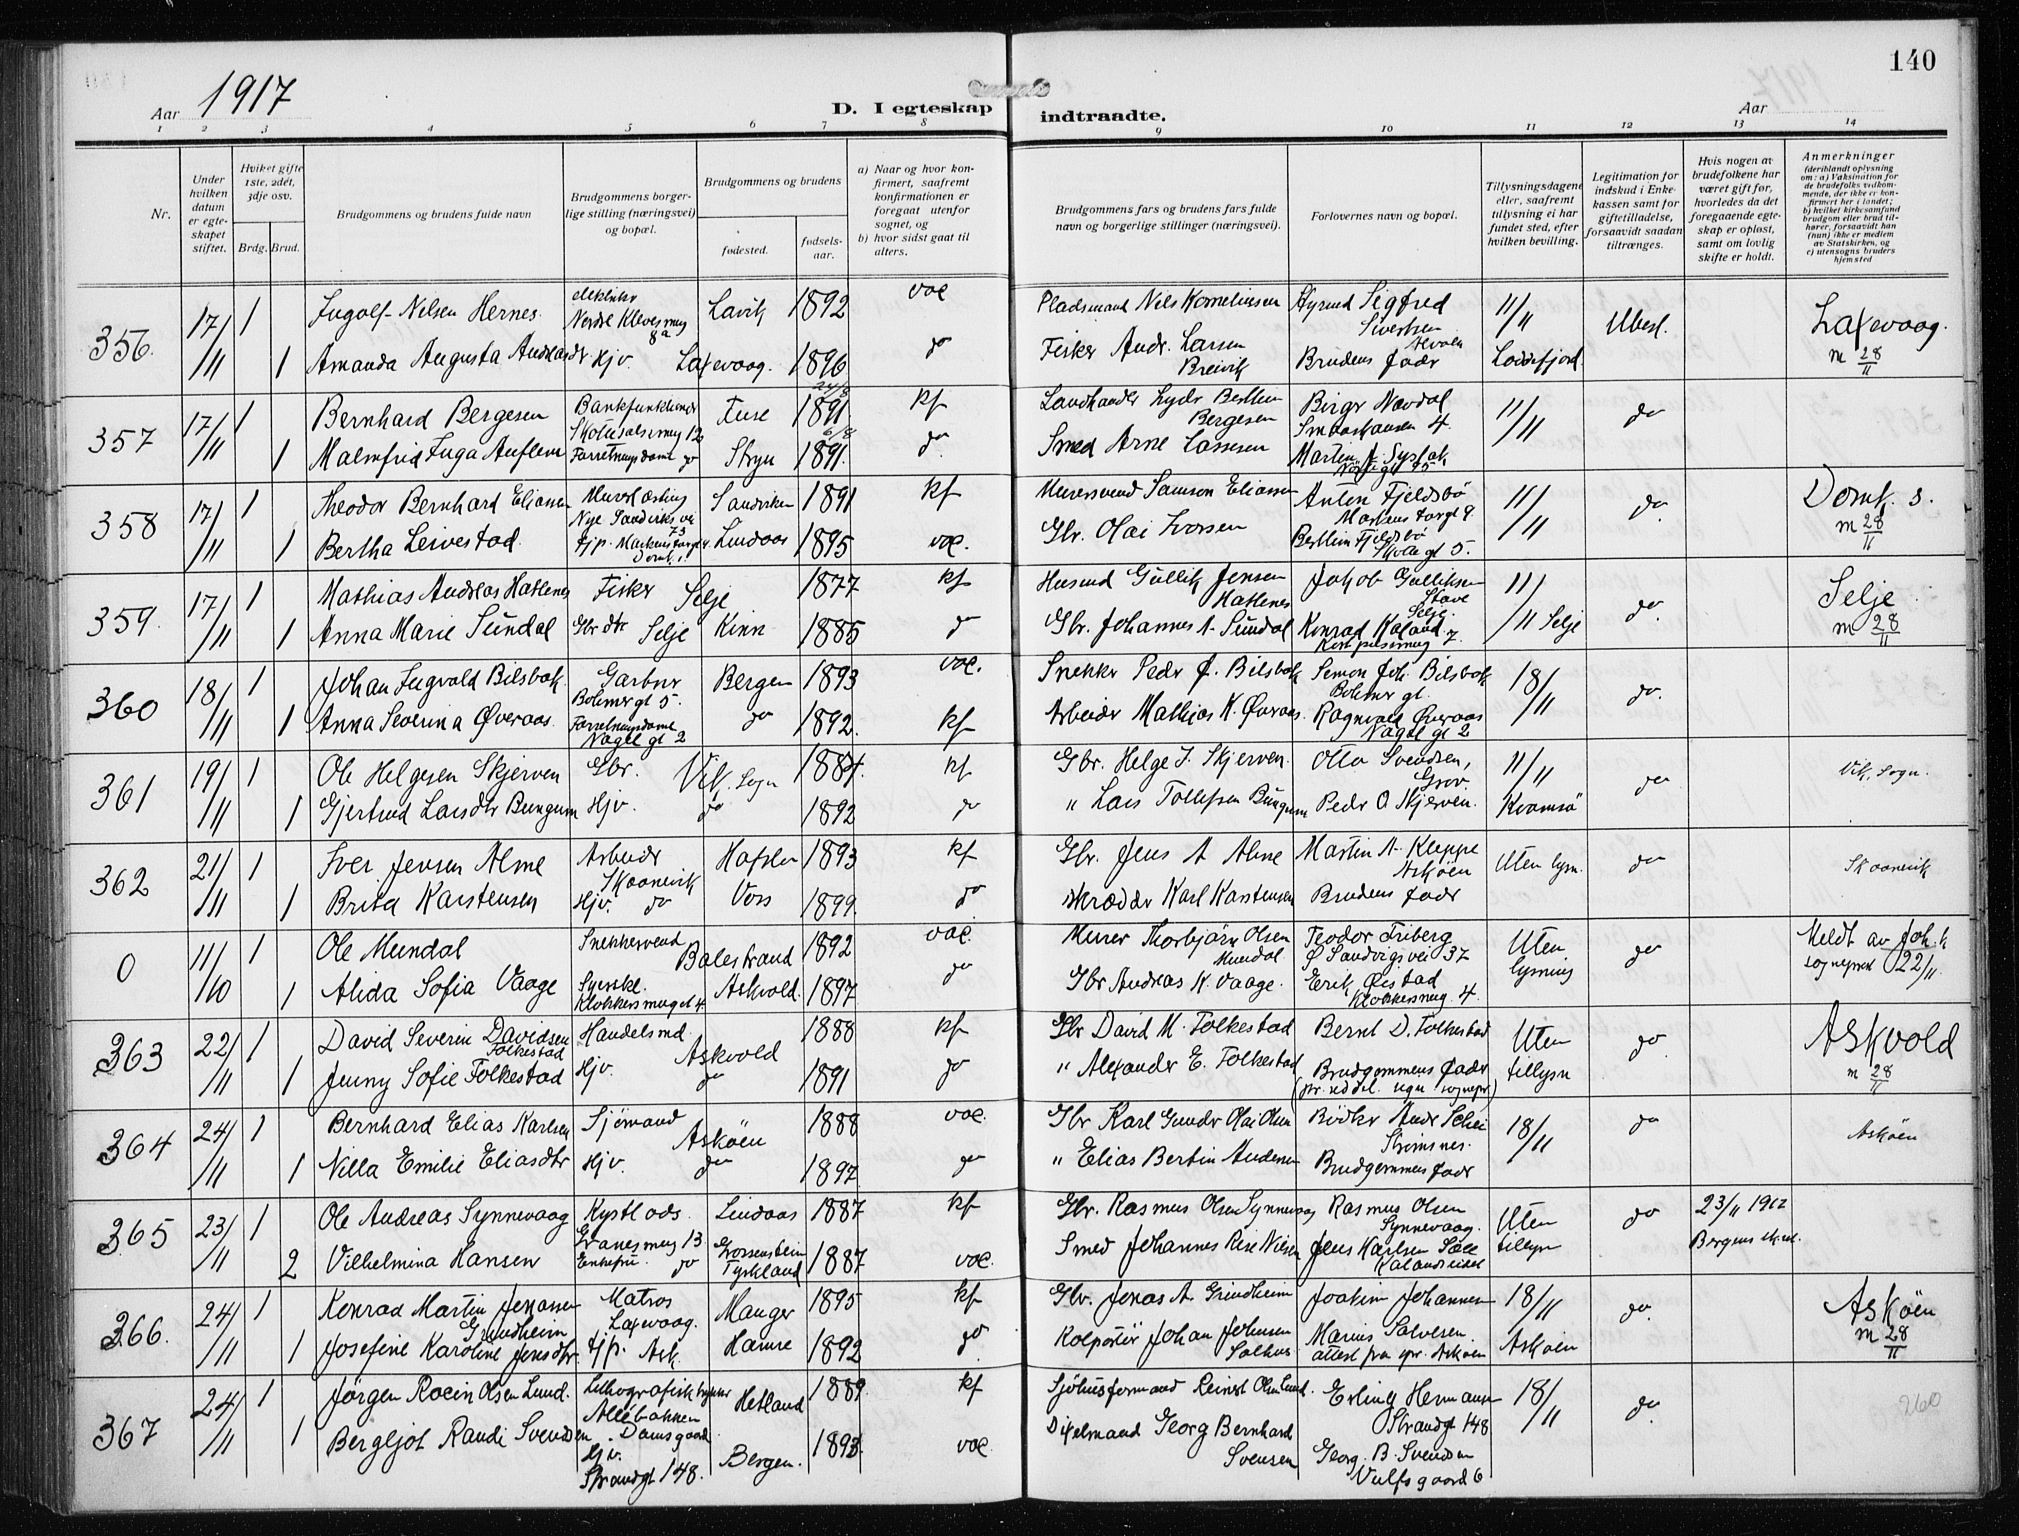 140
Aar 1917
D. I egteskap
indtraadte.
Aar
1 2 3 4 5 6 7 8 9 10 11 12 13 14
Nr.
Under hvilken datum er egte-skapet stiftet.
Hvilket gifte 1ste, 2det, 3dje osv.
Brdg. Brud.
Brudgommens og brudens fulde navn
Brudgommens borger-lige stilling (næringsvei) og bopæl.
Brudgommens og brudens
fødested.
fødsels-aar.
a) Naar og hvor kon-firmert, saafremt konfirmationen er foregaat utenfor sognet, og
b) hvor sidst gaat til alters.
Brudgommens fars og brudens fars fulde navn og borgerlige stillinger (næringsvei).
Forlovernes navn og bopæl.
Tillysningsdagene eller, saafremt tillysning ei har fundet sted, efter hvilken bevilling.
Legitimation for indskud i Enke-kassen samt for giftetilladelse, forsaavidt saadan tiltrænges.
Hvis nogen av brudefolkene har været gift før, hvorledes da det foregaaende egte-skap er opløst, samt om lovlig skifte er holdt.
Anmerkninger (deriblandt oplysning om: a) Vaksination for de brudefolks vedkom-mende, der ikke er kon-firmert her i landet; b) hvilket kirkesamfund brudgom eller brud til-hører, forsaavidt han (hun) ikke er medlem av Statskirken, og c) utensogns bruders hjemsted
356. 17/11 1 Ingolf Nelsen Hernes Lavik 1892 voe Pladsmand Nils Kornelinsen Styrmd Sigfred Sivertsen 11/11 Ubesl. Laxevaag.
1 Amanda Augusta Andreasdr Hjv. Laxevaag. 1896 do Fisker Andr. Larsen Breivik Brudens fader Loddefjord m 28/11
357 17/11 1 Bernhard Bergesen Fuse 24/8 1891 kf Landhandler Lyder Berthin Bergesen Birger Nævdal 4. 11/11 do
1 Malmfrid Inga Auflem Forretningsdame do Stryn 6/8 1891. do. Smed Arne Lassesen
358 17/11 1 Theodor Bernhard Eliassen Nye Sandviks vei 73 Sandviken 1891 kf Murersvend Samson Eliassen Anton Fjeldsbø 11/11 do. Domk. s.
1 Bertha Leivestad Lindaas 1895 voe. Gbr. Olai Ivarsen Berthin Fjeldsbø m 28/11
359. 17/11 1 Mathias Andreas Hatlenes Fisker Selje 1877 kf Husmd Gullik Jensen Hatlenes Jakob Gulliksen Stave Selje. 11/11 Selje do. Selje
1 Anna Marie Sundal Gbr dtr Selje Kinn 1885 do Gbr. Johannes A. Sundal Konrad Kaland m 28/11
360 18/11 1 Johan Ingvald Bilsbak. Garver Bøhmer gt 5. Bergen 1893 voe. Snekker Peder J. Bilsbak Simon Joh. Bilsbak Bøhmer gt. 18/11 do.
1 Anna Severina Øveraas. Forretningsdame Nagel gt 2 do 1892. kf Arbeider Mathias K. Øveraas. Ragnvald Øveraas Nagel gt 2
361 19/11 1 Ole Helgesen Skjerven Gbr. Vik, Sogn 1884. kf Gbr. Helge I. Skjerven. Otto Svendsen, Grov. 11/11 do Vik, Sogn.
1 Gjertrud Larsdtr Bungum Hjv. do 1892 do " Lars Tollefsen Bungum Peder O Skjerven. Kvamsø
362 21/11 1 Iver Jensen Alme Arbeider Skaanevik Hafslo 1893 kf Gbr. Jens A Alme Martin A. Kleppe Askøen Uten lysn. do Skaanevik
1 Brita Karstensen Hjv. do Voss 1899. do Skrædder Karl Karstensen Brudens fader
0 11/10 1 Ole Mundal Snekkersvend Balestrand 1892 voe. Murer Thorbjørn Olsen Mundal Teodor Friberg Ø Sandvigsvei 37 Uten lysning do Meldt av Joh. k sogneprest 22/11.
1 Alida Sofia Vaage Syerske. Klokkersmuget 4. Askvold. 1897 do Gbr Andreas K. Vaage. Erik Øistad Klokkersmug. 4.
363 22/11 1 David Severin Davidsen Folkestad Handelsmd Askvold 1888 kf Gbr David M. Folkestad Bernt D. Folkestad Uten tillysn do Askvold
1 Jenny Sofie Folkestad Hjv. do 1891 do " Alexander E. Folkestad Brudgommens fader m 28/11
364 24/11 1 Bernhard Elias Karlsen Sjømand Askøen 1888 voe. Gbr Karl Gunder Olai Olsen Bødker Andr Schei Strømsnes. 18/11 do Askøen
1 Nilla Emilie Eliasdtr Hjv. do 1897. do " Elias Bertin Andersen Brudgommens fader
365 23/11 1 Ole Andreas Synnevaag Kystlods. Lindaas 1887 kf Gbr. Rasmus Olsen Synnevaag Rasmus Olsen Synnevaag. Uten tillysn do 23/11 1912
2 Vilhelmina Hansen Tyskland 1887 voe. Smed Johannes Nilsen Jens Karlsen Bergens skud.
366. 24/11 1 Konrad Martin Jonassen Grindheim Matros Laxevaag. Manger 1895 kf Gbr. Jonas A Grindheim Joakim Johannesen 18/11 do. Askøen
1 Josefine Karoline Jensdtr. Hjp. Ask Hamre 1892 do. Kolportør Johan Johnsen Salhus Marius Salvesen. attest fra spr. Askøen Askøen m 28/11
367 24/11 1 Jørgen Olsen Lund. Lithografisk trykker Allébakken Damsgaard Hetland 1889. kf Sjøhusformand Reinert Olsen Lund. Erling Hermansen Strandgt 148 18/11 do. 260
1 Bergljot Randi Svendsen Hjv. Strandgt 148. Bergen. 1893. voe. Dixelmand Georg Bernhard Svensen Georg. B. Svendsen Vulfsgaard 6